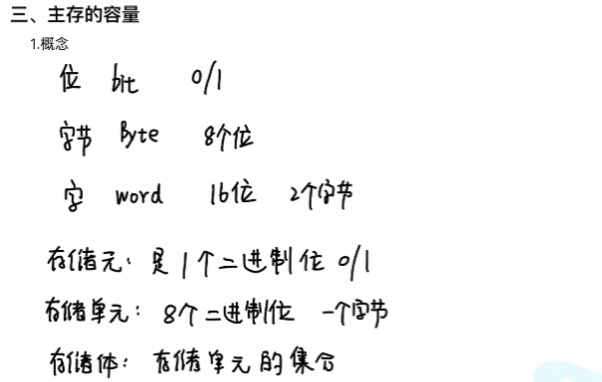 三、主存的容量
1.概念
位 bit 0/1
字节 Byte 8个位
字 word 16位 2个字节
存储元：是1个二进制位 0/1
存储单元：8个二进制位 一个字节
存储体：存储单元的集合